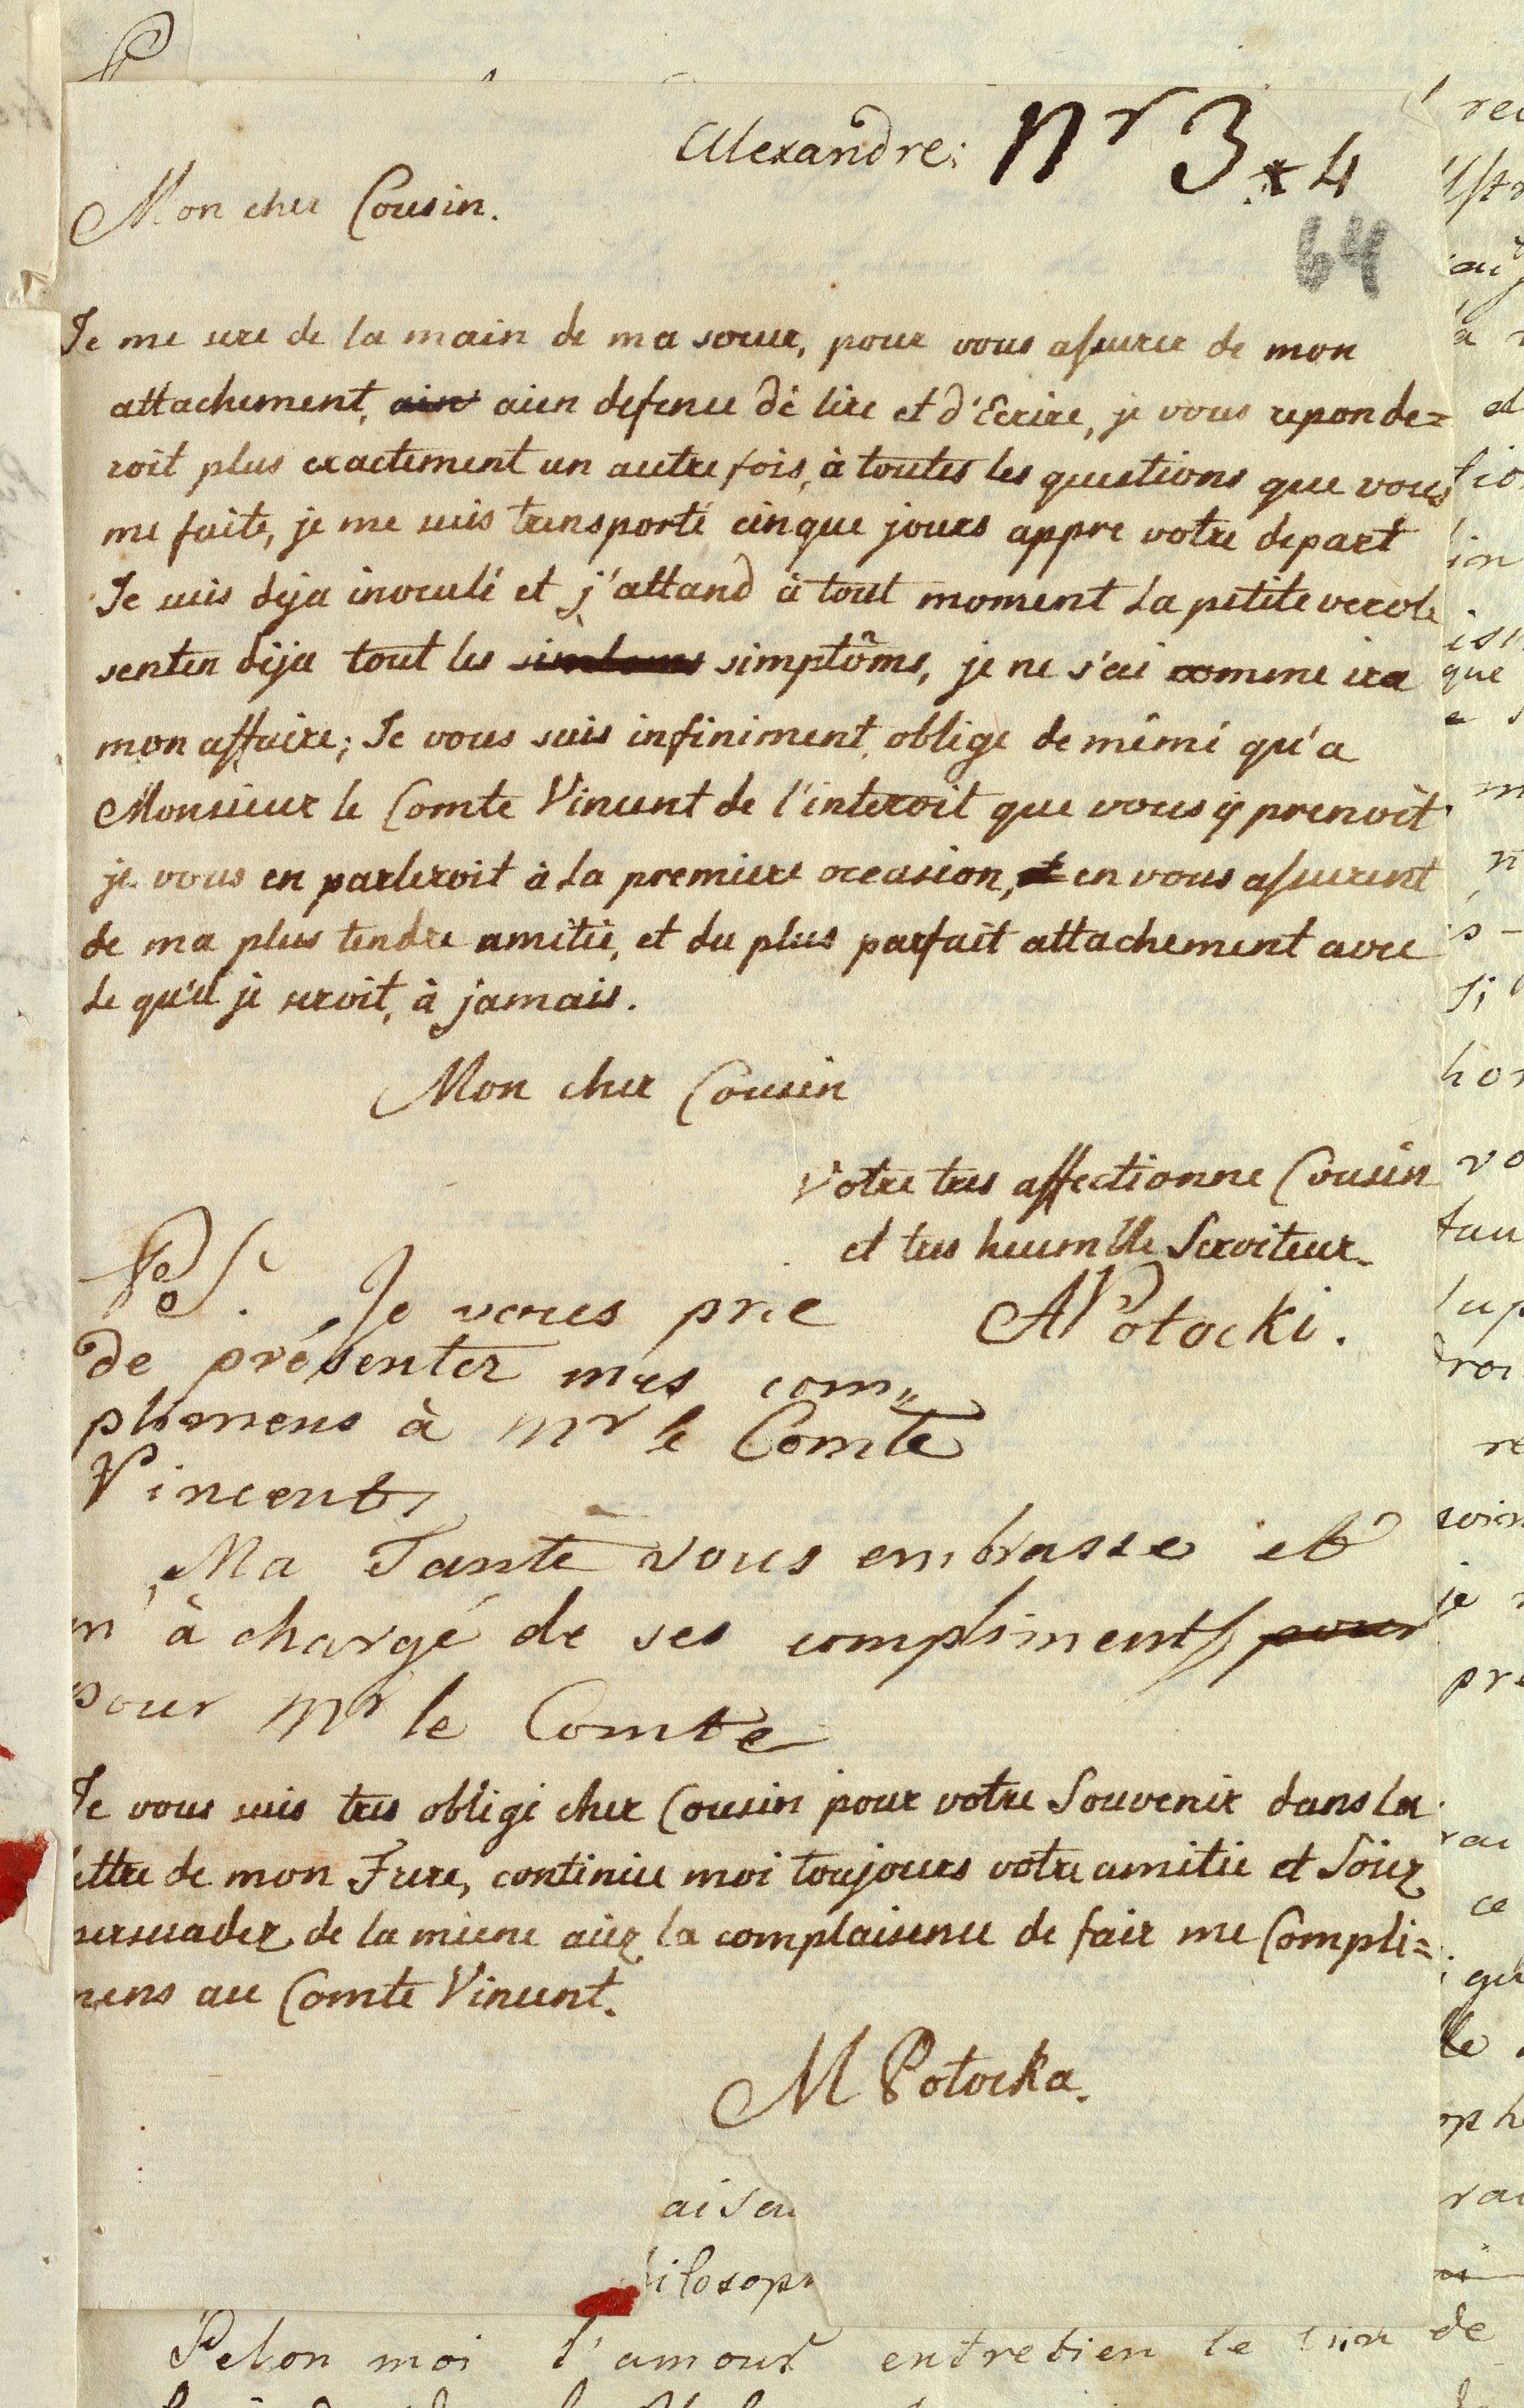 Alexandre: Nr 3 x 4
Mon cher Cousin.
64
Je me sere de la main de ma soeur, pour vous assurer de mon
attachement, aien defence de lire et d'Ecrire, je vous reponde=
roit plus exactement un autre fois, à toutes les questions que vous
me faite, je me suis transporté cinque jours appre votre depart
Je suis deja inoculé et j'attand à tout moment la petite verole
senten deja tout les simptôms, je ne s'ai comme ira
mon affaire; Je vous suis infiniment oblige de mêmé qu'a
Monsieur le Comte Vincent de l'interoit que vous y prenoit
je vous en parleroit à la premiere occasion, et en vous assurent
de ma plus tendre amitié, et du plus parfait attachement avec
le qu'el je seroit, à jamais.
Mon cher Cousin
Votre tres affectionne Cousin
et tres humble Serviteur.
APotocki.
PS. Je vous prie
de présenter mes com„
plimens à Mr le Comte
Vincent,
Ma Tante vous embrasse et
m'à chargé de ses compliments pour
pour Mr le Comte
Je vous suis tres obligé cher Cousin pour votre Souvenir dans la
lettre de mon Frere, continue moi toujours votre amitié et Soiez
persuadez de la miene aiez la complaisence de fair me Compli=
mens au Comte Vincent.
M Potocka.
aiseu
ilosoph
Selon moi l'amour entretien le